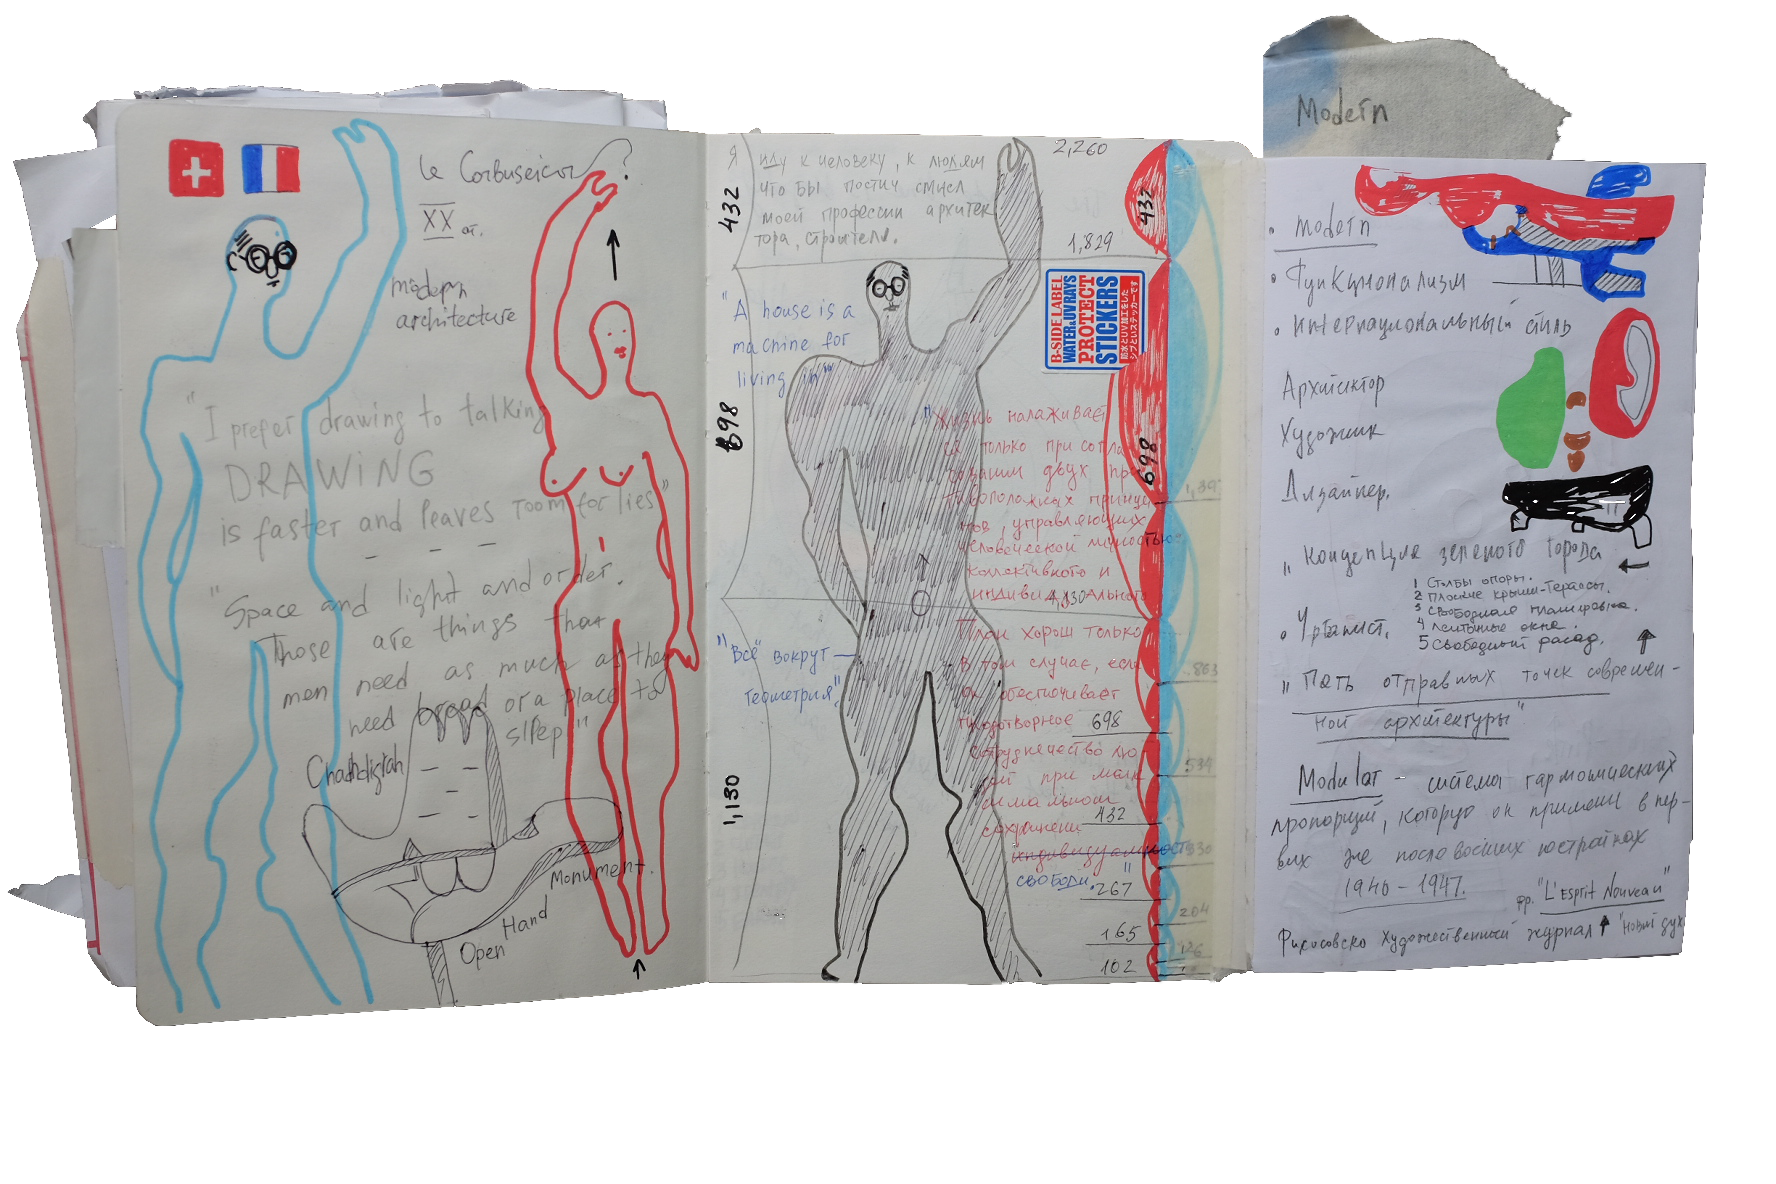 le Corbuseicor ?
XX от.
modern
architecture
"I prefer drawing to talking
DRAWING
is faster and leaves room for lies"
"Space and light and order.
Those are things that
men need as much as they
need bread or a place to
sleep"
Chandigrah
Open Hand Monument.
Я иду к человеку, к людям
что бы постич смысл
моей профессии архитек
тора, строителя.
432
698
1,130
2,260
1,829
"A house is a
machine for
living in"
"Всё вокруг
геометрия".
B-SIDE LABEL
WATER & UV RAYS
PROTECT
STICKERS
防水とUV加工をした
シブといステッカーです
"Жизнь налаживает
ся только при согла
совании двух про
тивоположных принци
пов, управляющих
человеческой личностью
коллективного и
индивидуального
1,130
План хорош только
в том случае, если
он обеспечивает
плодотворное
сотрудничество лю
дей при макс
симальном
сохранении
индивидуальности
свободы."
432
698
698
432
267
165
102
863
534
330
204
126
Modern
• modern
• Функционализм
• интернациональный стиль
Архитектор
Художник
Дизайнер.
"Концепция зеленого города
1 Столбы опоры.
2 Плоские крыши-терассы.
3 Свободная планировка.
4 Ленточные окна.
5 Свободный фасад.
• Урбанист.
"Пять отправных точек современ-
ной архитектуры"
Modulor - система гармонических
пропорций, которую он применил в пер-
вых же послевоенных постройках
1946-1947.
фр. "L'Esprit Nouveau"
Философско художественный журнал "новый дух